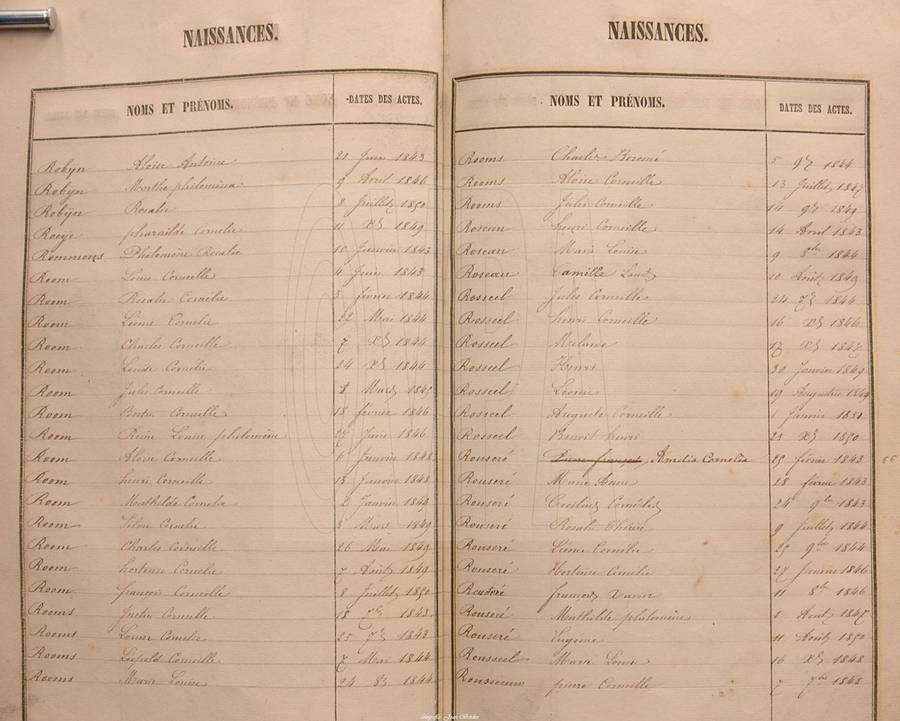 NAISSANCES.
NOMS ET PRÉNOMS. DATES DES ACTES.
Robyn Aloise Antoine 21 Juin 1843
Robyn Marthe philomina 9 Avril 1846
Robyn Rosalie 8 Juillet 1850
Roeye pharailde Amelie 11 Xb 1849
Rommons Philomene Rosalie 10 Janvier 1843
Room Louis Corneille 4 Juin 1843
Room Rosalie Cornelie 5 fevrier 1844
Room Leonie Cornelie 22 Mai 1844
Room Charles Corneille 7 Xb 1844
Room Louise Cornelie 24 Xb 1844
Room Julie Corneille 8 Mars
Room Corneille 18 fevrier 1846
Room Reine Louise philomène 27 Juin 1846
Room Aloise Corneille 6 Janvier 1848
Room henri Corneille 13 Janvier 1848
Room Mathilde Cornelie 2 Janvier 1849
Room Cornelie 3 Mars 1849
Room Charles Corneille 26 Mai 1849
Room hortense Cornelie 7 Août 1849
Room françois Corneille 8 Juillet 1850
Rooms Justin Corneille 18 1843
Rooms Louise Cornelie 25 7b 1843
Rooms Léopold Corneille 7 Mai 1844
Rooms Marie Louise 24 8b 1844
NAISSANCES.
NOMS ET PRÉNOMS. DATES DES ACTES.
Rooms Charles Boromé 5 9b 1844
Rooms Aloise Corneille 13 Juillet 1847
Rooms Jules Corneille 14 9b 1849
Roseau henri Corneille 14 Avril 1843
Roseau Marie Louise 9 8bre 1844
Roseau Camille 10 Août 1849
Rosseel Jules Corneille 24 7b 1844
Rosseel henri Corneille 16 Xb 1846
Rosseel Melanie 17 Xb 1847
Rosseel Henri 20 Janvier 1849
Rosseel Leonie 19 1849
Rosseel Auguste Corneille 1 Janvier 1850
Rosseel Benoit henri 23 Xb 1850
Rouseré Amelia Cornelia 25 fevrier 1843
Rouseré Marie Anne 28 fevrier 1843
Rouseré 24 9bre 1843
Rouseré Rosalie Thérèse 9 Juillet 1844
Rouseré Léonie Cornelie 25 9bre 1844
Rouseré Hortense Cornelie 27 Janvier 1846
Rouseré françois Xavier 11 8bre 1846
Rouseré Mathilde philomène 1 Août 1847
Rouseré Eugénie 11 Août 1850
Rousseel Marie Louise 16 Xb 1848
Rousseeuw pierre Corneille 7 7bre 1848